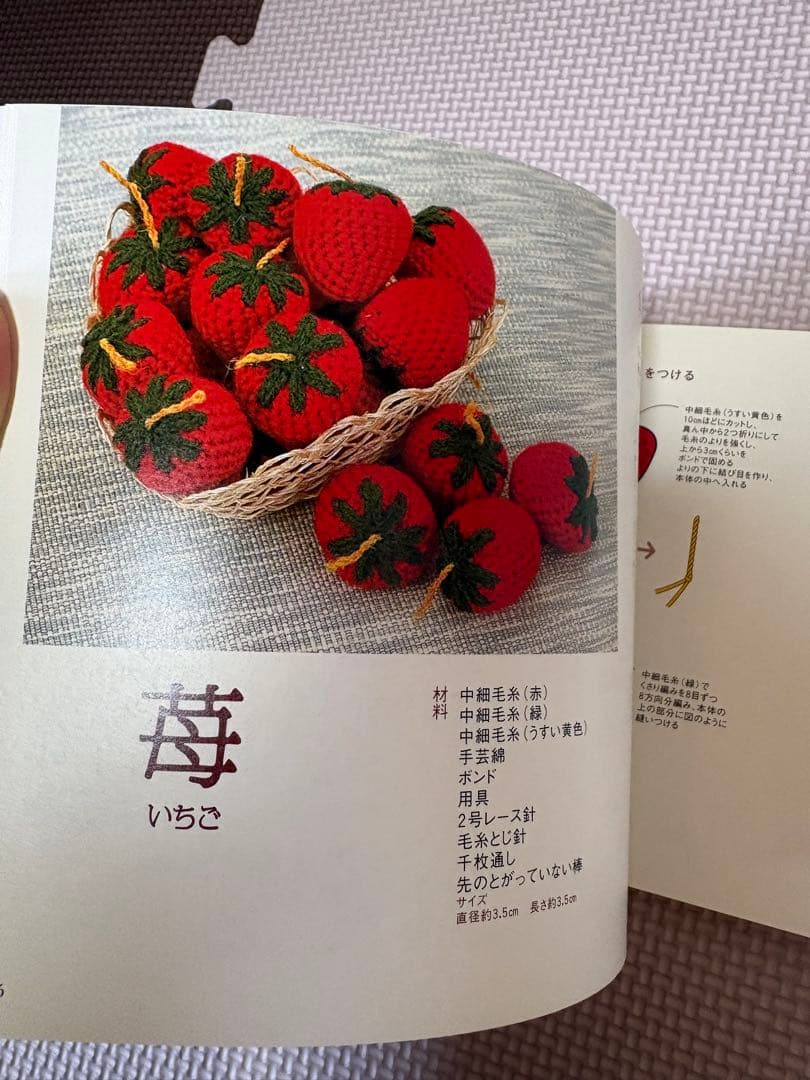 苺
いちご
材料
中細毛糸(赤)
中細毛糸(緑)
中細毛糸(うすい黄色)
手芸綿
ボンド
用具
2号レース針
毛糸とじ針
千枚通し
先のとがっていない棒
サイズ
直径約3.5㎝ 長さ約3.5㎝
をつける
中細毛糸(うすい黄色)を
10㎝ほどにカットし、
真ん中から2つ折りにして
毛糸のよりを強くし、
上から3㎝くらいを
ボンドで固める
よりの下に結び目を作り、
本体の中へ入れる
中細毛糸(緑)で
くさり編みを8目ずつ
8方向分編み、本体の
上の部分に図のように
縫いつける